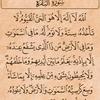 سورة البقرة
اللَّهُ لَا إِلَٰهَ إِلَّا هُوَ الْحَيُّ الْقَيُّومُ لَا
تَأْخُذُهُ سِنَةٌ وَلَا نَوْمٌ لَهُ مَا فِي السَّمَٰوَٰتِ
وَمَا فِي الْأَرْضِ مَنْ ذَا الَّذِي يَشْفَعُ عِنْدَهُ
إِلَّا بِإِذْنِهِ يَعْلَمُ مَا بَيْنَ أَيْدِيهِمْ وَمَا
خَلْفَهُمْ وَلَا يُحِيطُونَ بِشَيْءٍ مِنْ عِلْمِهِ
إِلَّا بِمَا شَاءَ وَسِعَ كُرْسِيُّهُ السَّمَٰوَٰتِ